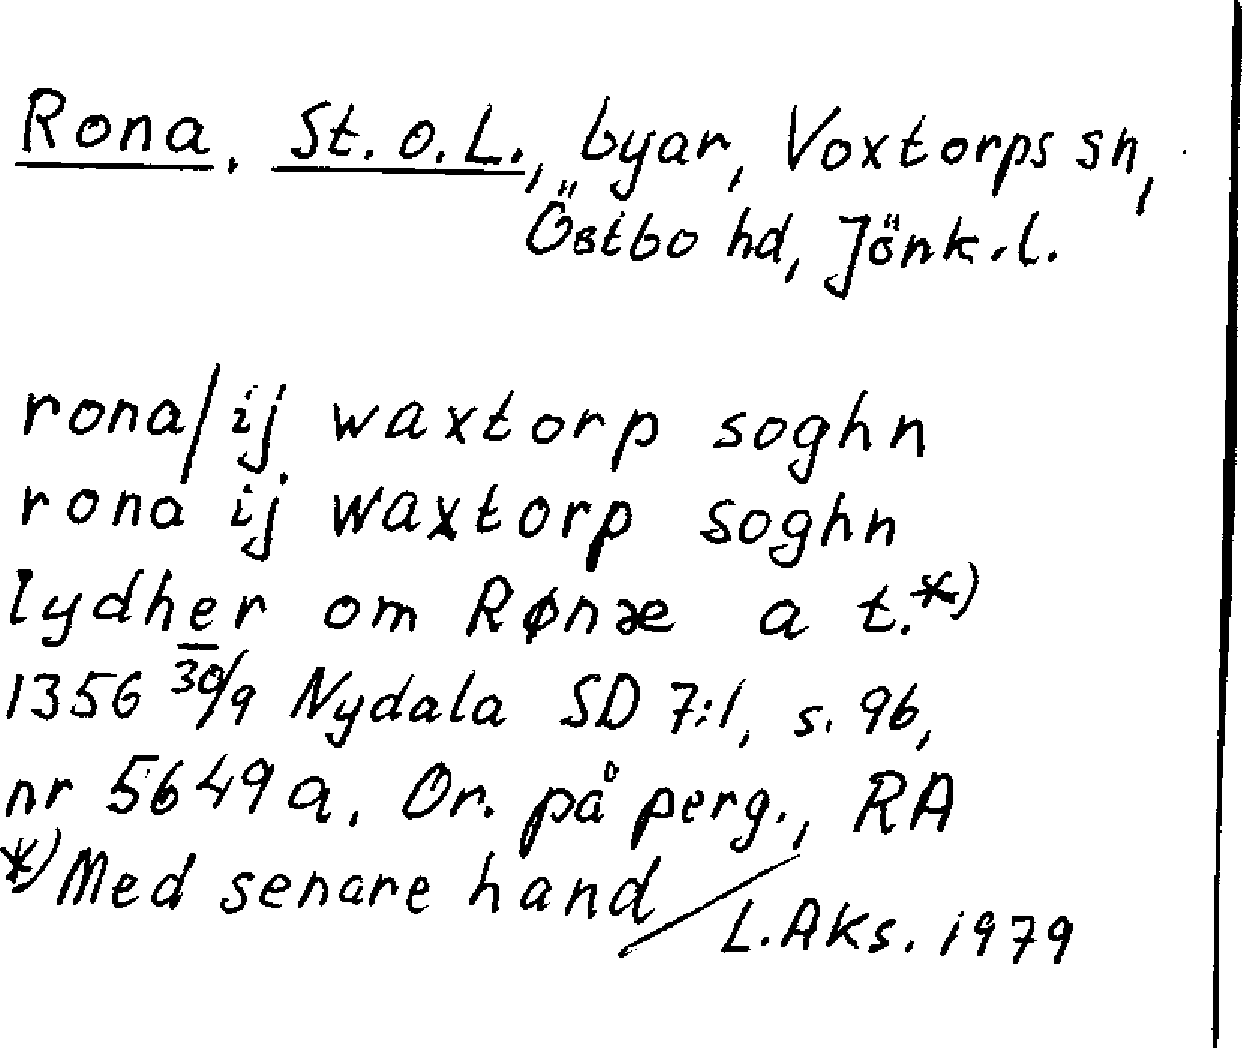 Rona, St. o. L., byar, Voxtorps sn,
Östbo hd, Jönk. l.
rona/ij waxtorp soghn
rona ij waxtorp soghn
lydher om Rønæ a t.*)
1356 30/9 Nydala SD 7:1, s. 96,
nr 5649 a. Or. på perg., RA
*) Med senare hand
L. Aks. 1979